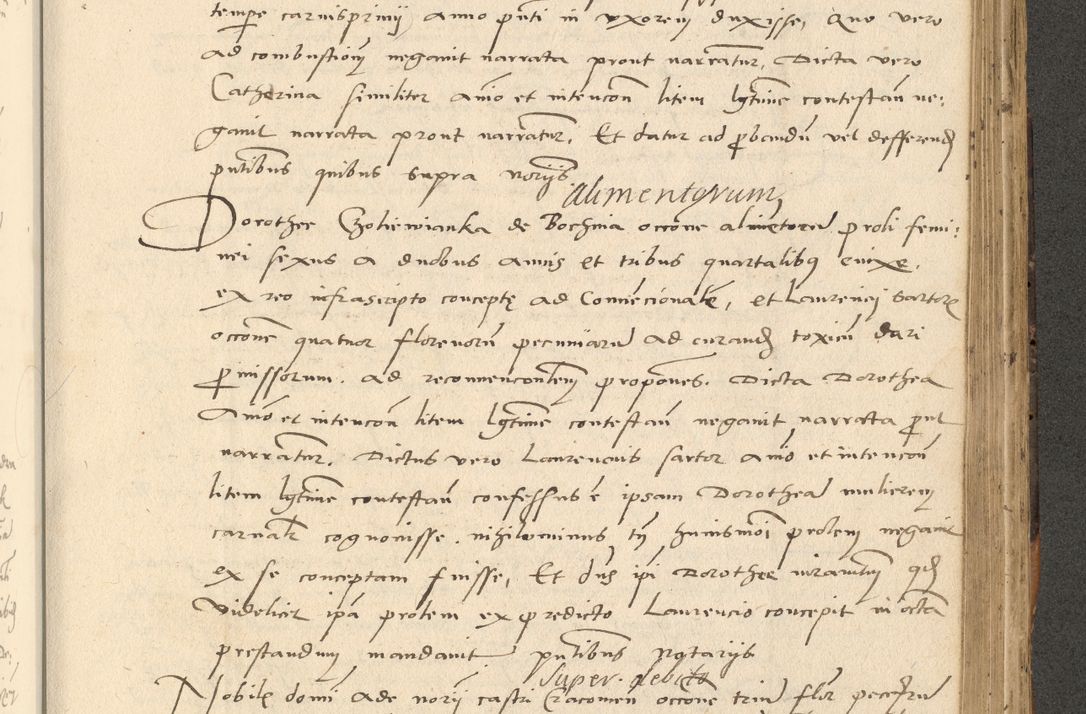 tempe carnisprimii anno pnti in uxorem duxisse, Quo vero
ad combustionem negavit narrata prout narrantur, Dicta vero
Catherina similiter animo et intencon litem lgtime contestan ne:
gavit narrata prout narrantur, Et datur ad probandum vel defferend
pntibus quibus supra noriis
Alimentorum
Dorothee de Bochnia occone alimetorum proli femi:
nei sexus a duobus annis et tribus quartalibus enixe,
ex reo infrascripto concepte ad Convencionalem, et Laurencij Sartoris
occone quatuor florenorum pecuniarum ad curand toxicum dari
promissorum. ad reconvencionem propones. Dicta Dorothea
Animo et intencon litem lgtime contestan negavit narrata prout
narrantur. Dictus vero Laurencius sartor animo et intencon
litem lgtime contestan confessus e ipsam Dorotheam mulierem
carnalr cognovisse. nihilominus tn huiusmoi prolem negavit
ex se conceptam fuisse, Et dns ipi Dorothee iuramentum qd
videlicet ipa prolem ex predicto Laurencio concepit in octa
prestandum mandavit pntibus Notariis
Super debito
Nobilem domi Ade norii castri Cracovien occone trium flor pecuniarum